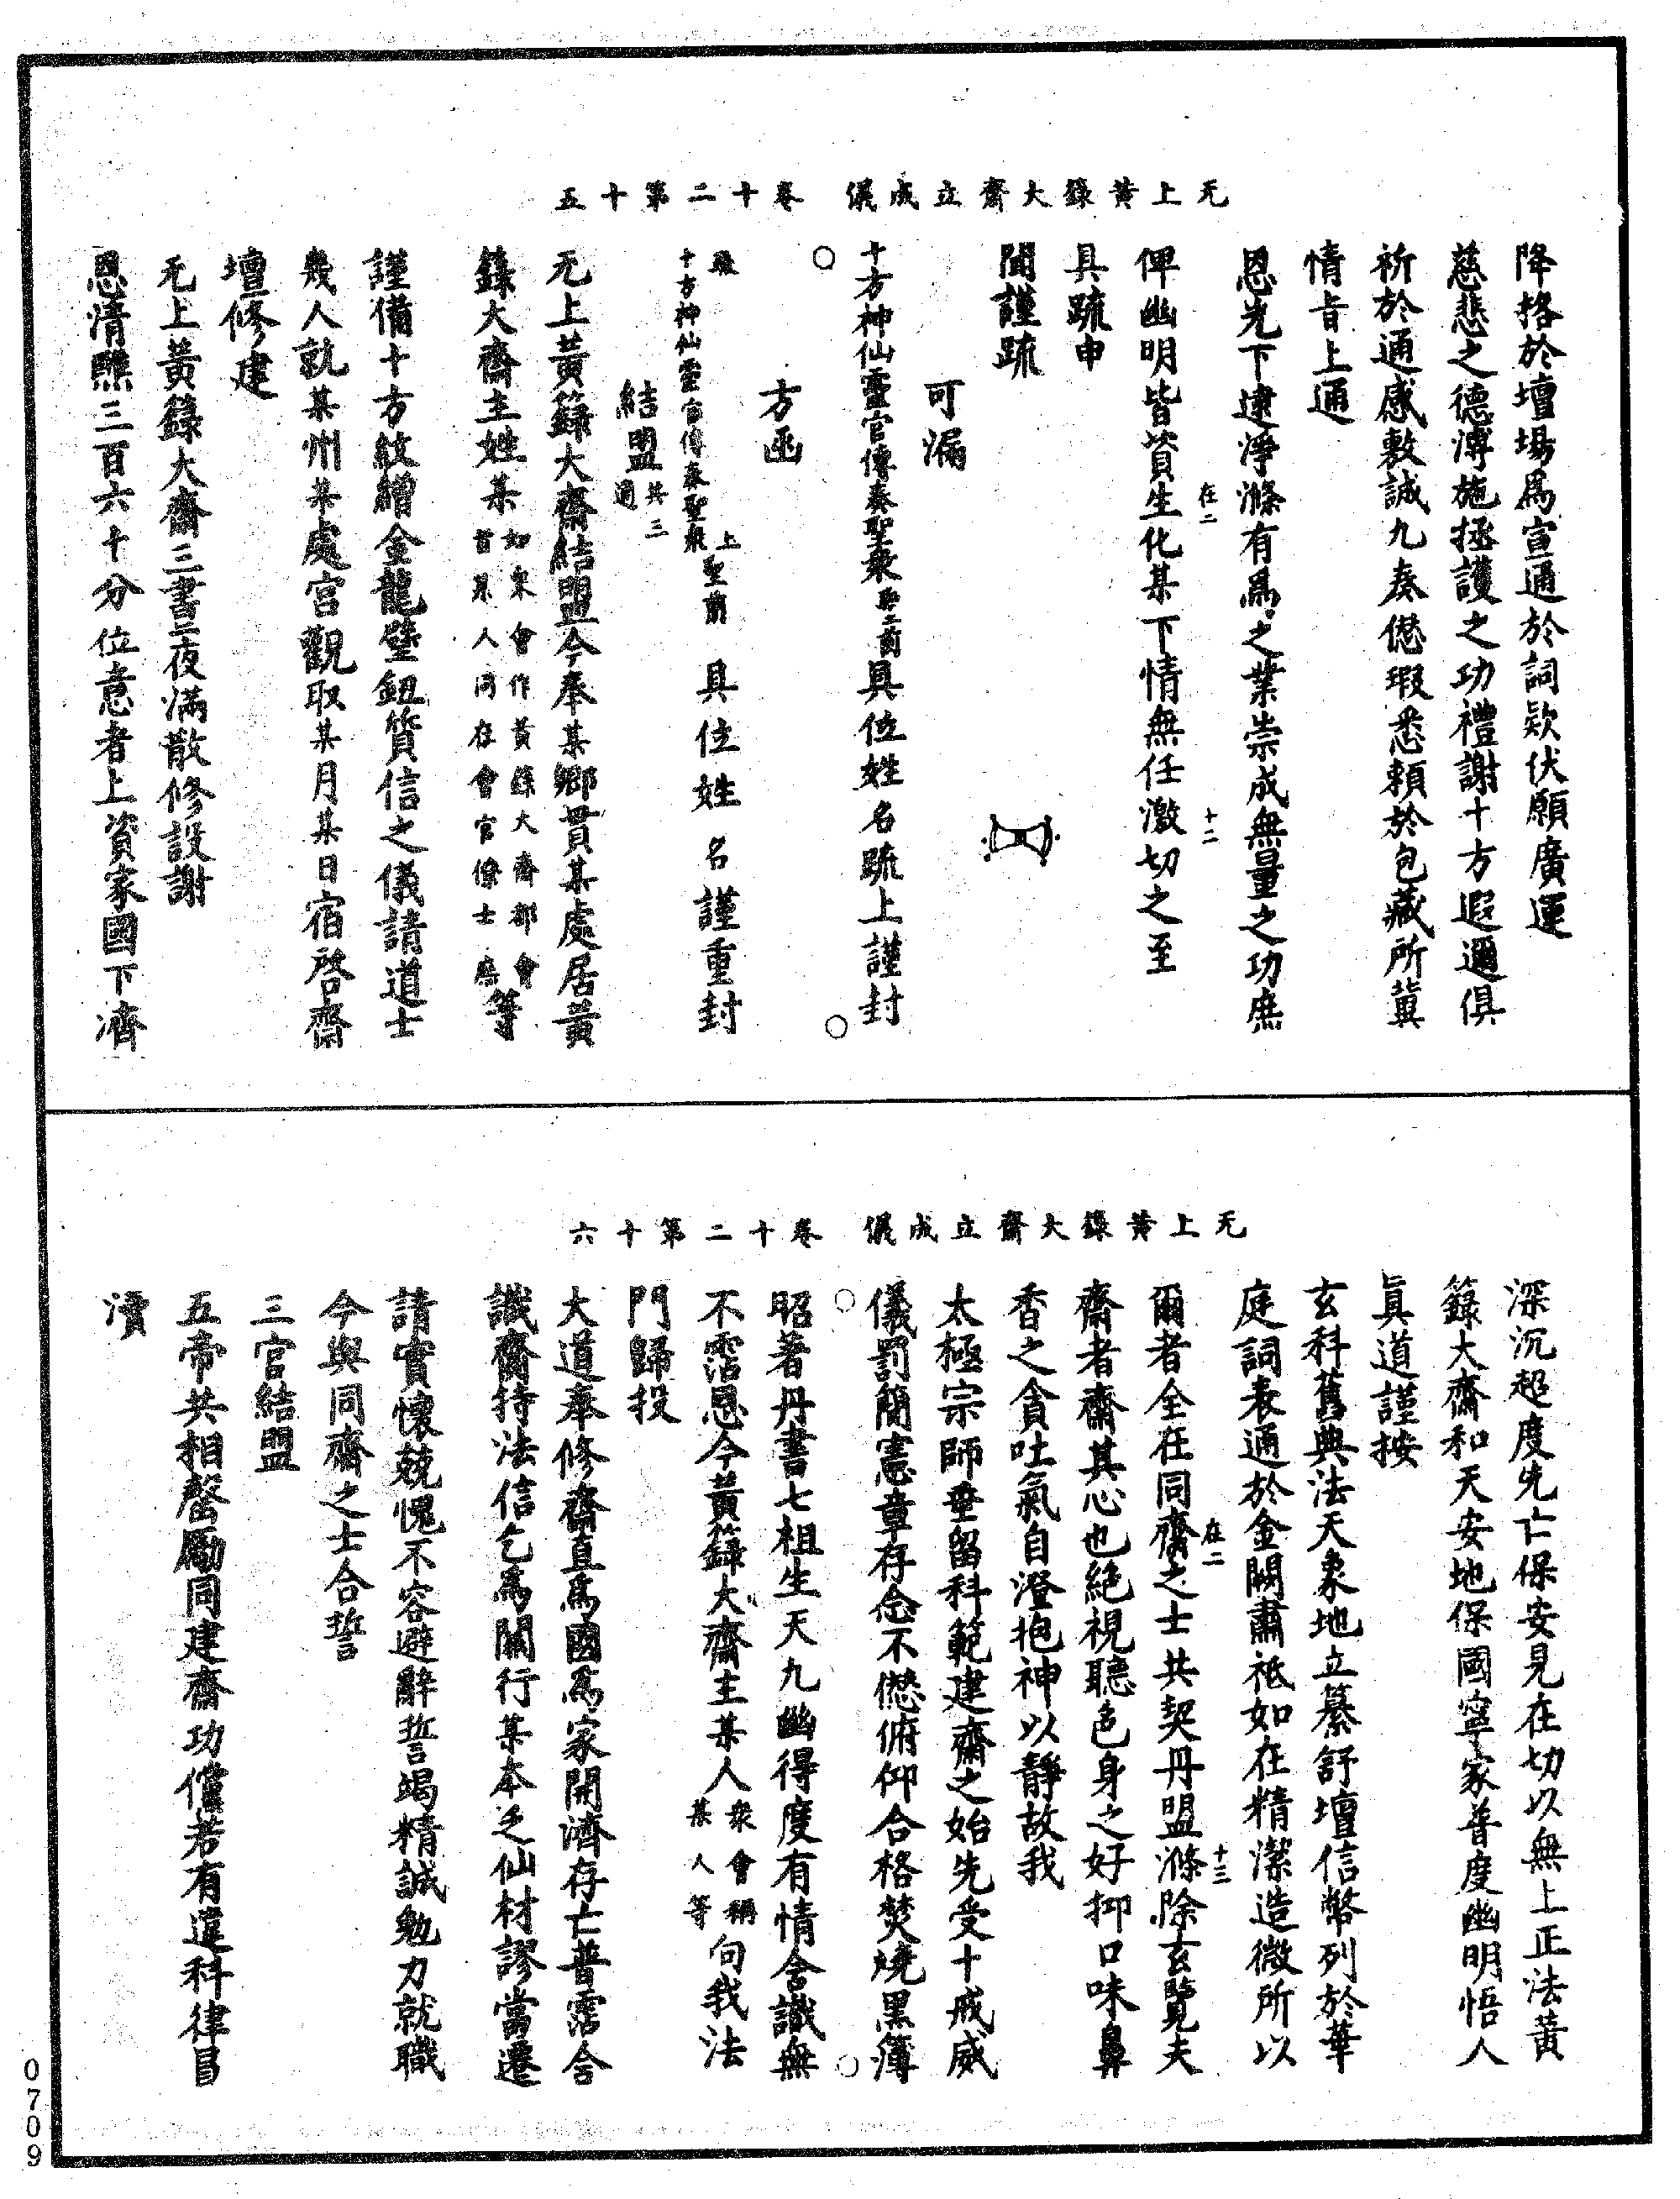 无上黃籙大齋立成儀　卷十二第十五
降格於壇場為宣通於詞欵伏願廣運
慈悲之德溥施拯護之功禮謝十方遐邇俱
祈於通感敷誠九奏愆瑕悉賴於包藏所冀
情旨上通
恩光下逮淨滌有為之業崇成無量之功庶
在二　十二
俾幽明皆資生化某下情無任激切之至
具疏申
聞謹疏
可漏
十方神仙靈官傳奏聖衆聖前具位姓名疏上謹封
方函
疏上
十方神仙靈官傳奏聖衆聖前　具位姓名謹重封
結盟共三通
无上黃籙大齋結盟今奉某鄉貫某處居黃
籙大齋主姓某如衆會作黃籙大齋都會首某人同在會官僚士庶等
謹備十方紋繒金龍璧鈕質信之儀請道士
幾人就某州某處宮觀取某月某日宿啓齋
壇修建
无上黃籙大齋三晝三夜滿散修設謝
恩清醮三百六十分位意者上資家國下濟
无上黃籙大齋立成儀　卷十二第十六
深沉超度先亡保安見在切以無上正法黃
籙大齋和天安地保國寧家普度幽明悟人
眞道謹按
玄科舊典法天象地立纂舒壇信幣列於華
庭詞表通於金闕肅祗如在精潔造微所以
在二　十三
爾者全在同齋之士共契丹盟滌除玄覽夫
齋者齋其心也絕視聽色身之好抑口味鼻
香之貪吐氣自澄抱神以靜故我
太極宗師垂留科範建齋之始先受十戒威
儀罰簡憲章存念不愆俯仰合格焚燒黑簿
昭著丹書七祖生天九幽得度有情含識無
不霑恩今黃籙大齋主某人衆會稱某人等句我法
門歸投
大道奉修齋直為國為家開濟存亡普霑含
識齋持法信乞為關行某本乏仙材謬當遷
請實懷兢愧不容避辭誓竭精誠勉力就職
今與同齋之士合誓
三官結盟
五帝共相罄勵同建齋功儻若有違科律冒
瀆
0709